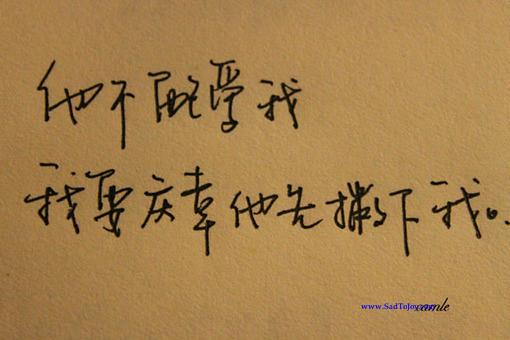 他不配受我
我要庆幸他先撇下我。
www.SadToJoy
camle